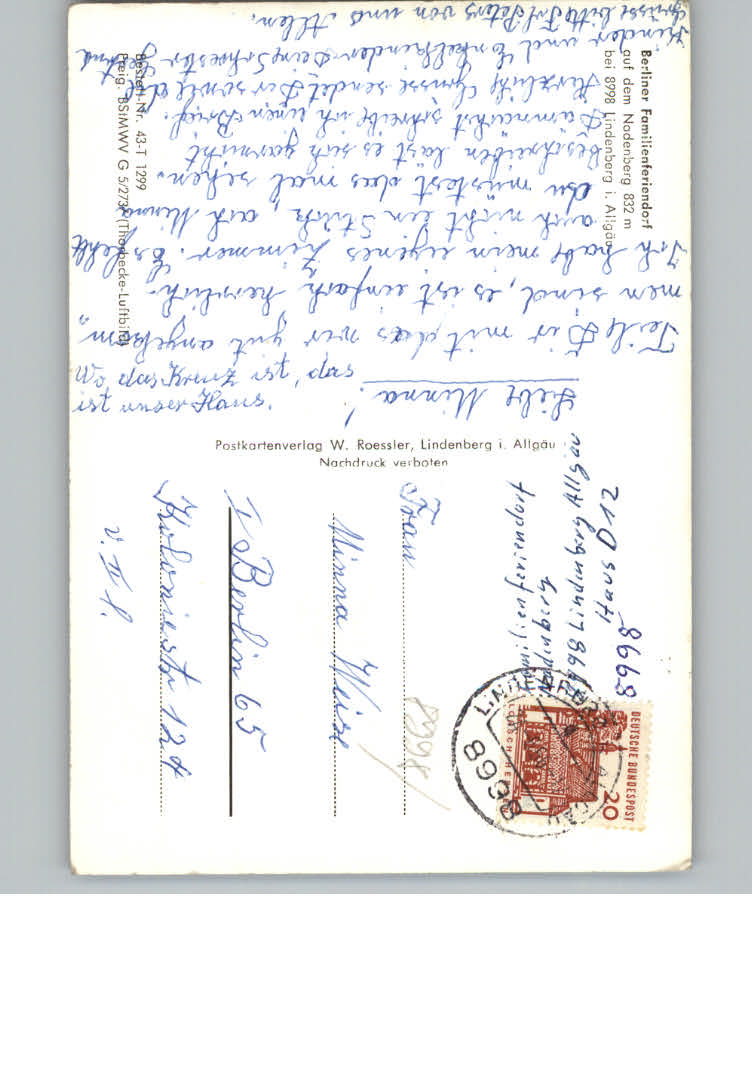 Berliner Familienferiendorf
auf dem Nadenberg 832 m
bei 8998 Lindenberg i. Allgäu
Liebe Minna!
Teile Dir mit das wir gut angekom-
men sind, es ist einfach herrlich.
Ich habe mein eigenes Zimmer. Es fehlt
auch nicht ein Stück, ach Minna
du müstest das mal sehen.
Beschreiben läst es sich garnicht
Demnächst schreibe ich einen Brief.
Herzliche Grüsse sendet Dir sowie
Kinder und Enkelkinder Deine Schwester
Grüsse bitte Peters von uns Allen.
ist unser Haus.
das ist
Bestell-Nr. 43-T 1299
Freig. BStMWV G 5/273 (Thorbecke-Luftbild)
Postkartenverlag W. Roessler, Lindenberg i. Allgäu
Nachdruck verboten
8998
Haus D 12
8998 Lindenberg Allgäu
Nadenberg
Familienferiendorf
DEUTSCHE BUNDESPOST
20
LORSCH HESSEN
8998
LINDENBERG
ALLGÄU
8998
Frau
Minna Weise
1 Berlin 65
Koloniestr 124
v. II l.